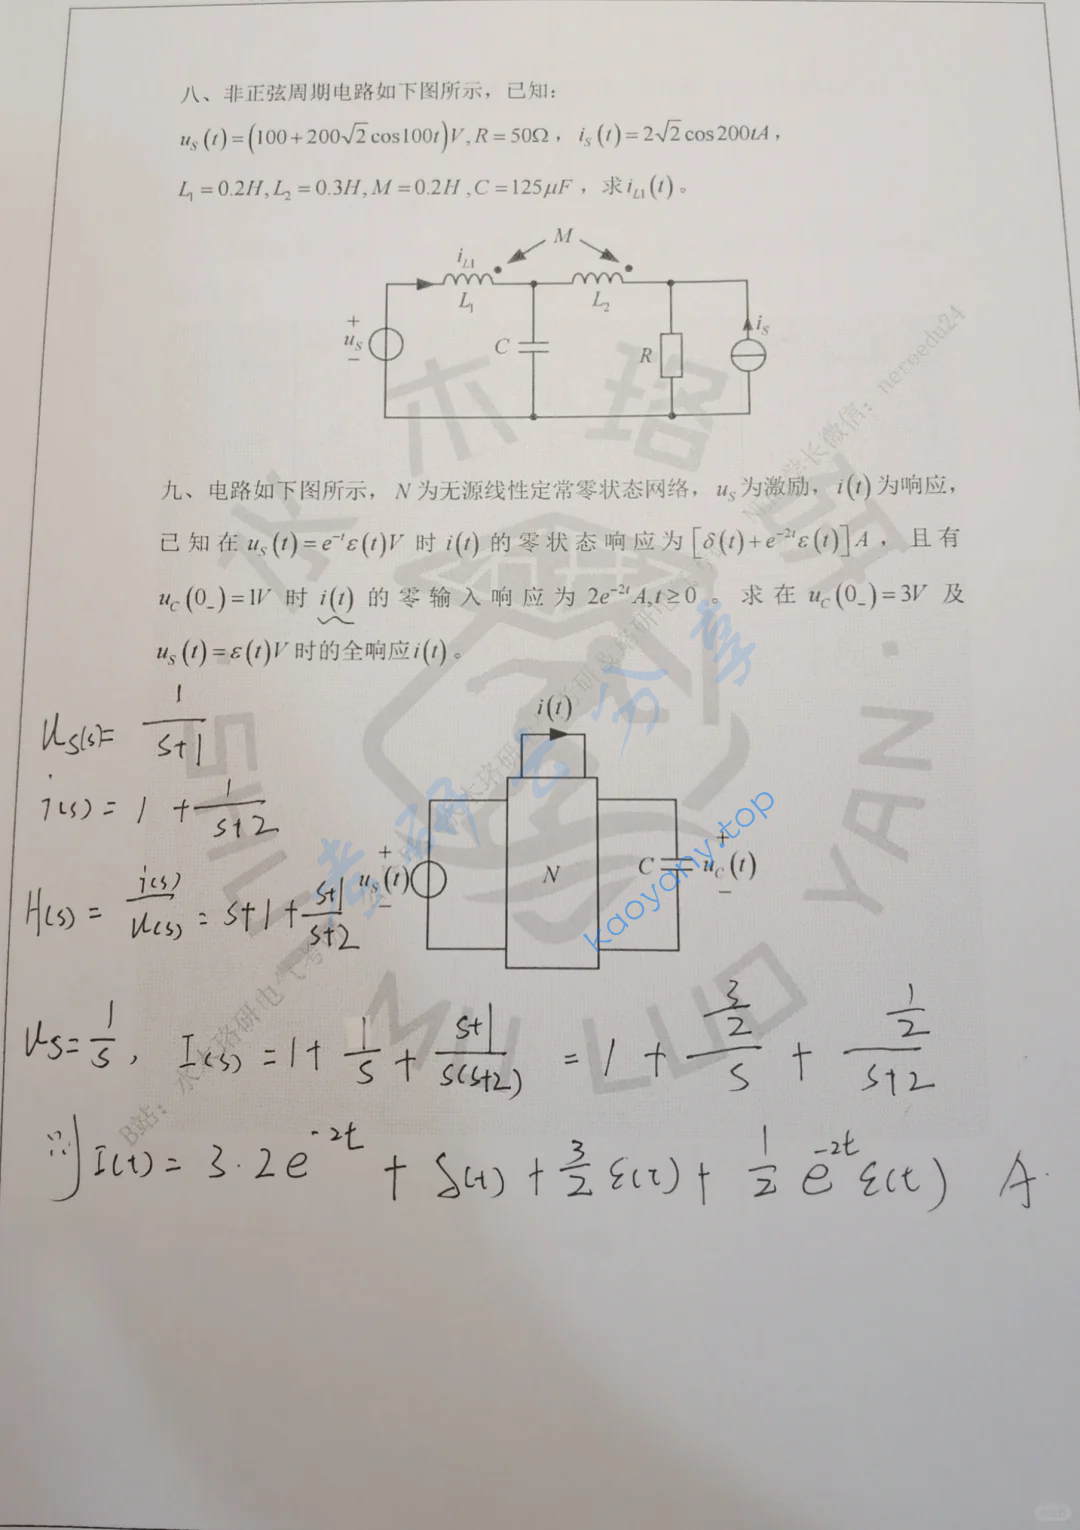 八、非正弦周期电路如下图所示，已知：
u_S(t)=(100+200√2cos100t)V,R=50Ω，i_S(t)=2√2cos200tA，
L₁=0.2H,L₂=0.3H,M=0.2H,C=125μF，求i_{L1}(t)。
M
i_{L1}
L₁
L₂
+
u_S
−
C
R
i_S
九、电路如下图所示，N为无源线性定常零状态网络，u_S为激励，i(t)为响应，
已知在u_S(t)=e^{-t}ε(t)V时i(t)的零状态响应为[δ(t)+e^{-2t}ε(t)]A，且有
u_C(0_-)=1V时i(t)的零输入响应为2e^{-2t}A,t≥0。求在u_C(0_-)=3V及
u_S(t)=ε(t)V时的全响应i(t)。
i(t)
+
u_S(t)
−
N
C
+
u_C(t)
−
U_S(s)=1/(s+1)
i(s)=1+1/(s+2)
H(s)=i(s)/U(s)=s+1+(s+1)/(s+2)
U_S=1/s，I(s)=1+1/s+(s+1)/(s(s+2))=1+(3/2)/s+(1/2)/(s+2)
则I(t)=3·2e^{-2t}+δ(t)+3/2ε(t)+1/2e^{-2t}ε(t) A.
水木珞研
SHUI·MU·LUO·YAN
考研云分享
kaoyany.top